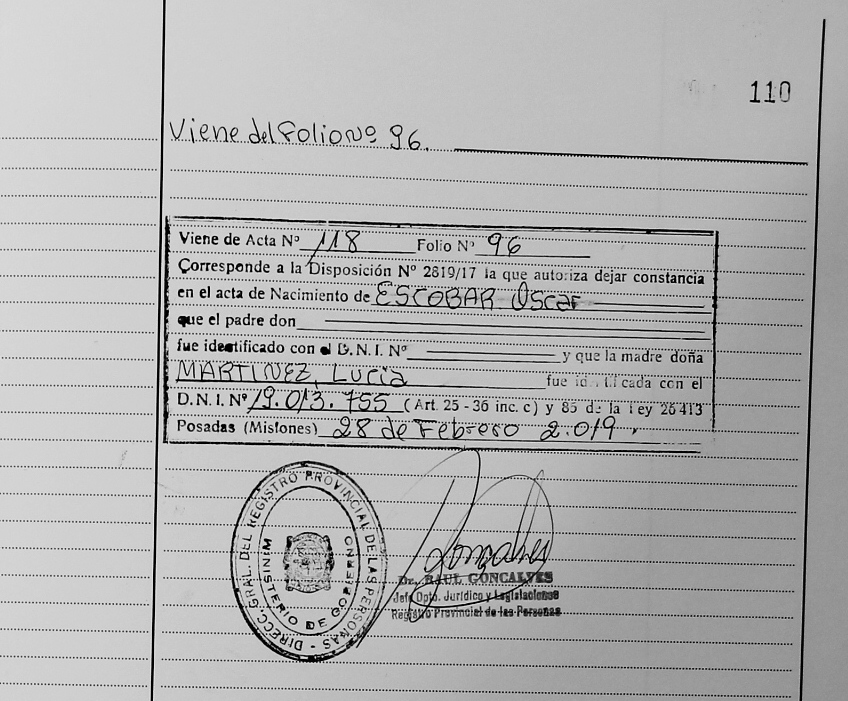 110
Viene del Folio Nº 96.
Viene de Acta Nº 118 Folio Nº 96
Corresponde a la Disposición Nº 2819/17 la que autoriza dejar constancia
en el acta de Nacimiento de ESCOBAR Oscar
que el padre don
fue identificado con el D.N.I. Nº y que la madre doña
MARTINEZ, Lucia fue identificada con el
D.N.I. Nº 19.013.755 (Art. 25 - 36 inc. c) y 85 de la Ley 26413
Posadas (Misiones) 28 de Febrero 2.019.
DIRECC. GRAL. DEL REGISTRO PROVINCIAL DE LAS PERSONAS -
MINISTERIO DE GOBIERNO
Gonçalves
Dr. RAUL GONCALVES
Jefe Dpto. Jurídico y Legislaciones
Registro Provincial de las Personas